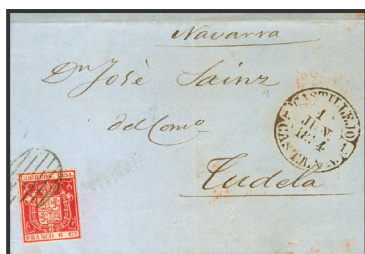 Navarra
Dn José Sainz
del Como
Tudela
CASTILLEJO
1
JUN
CORREOS 1854
FRANCO 6 Cs